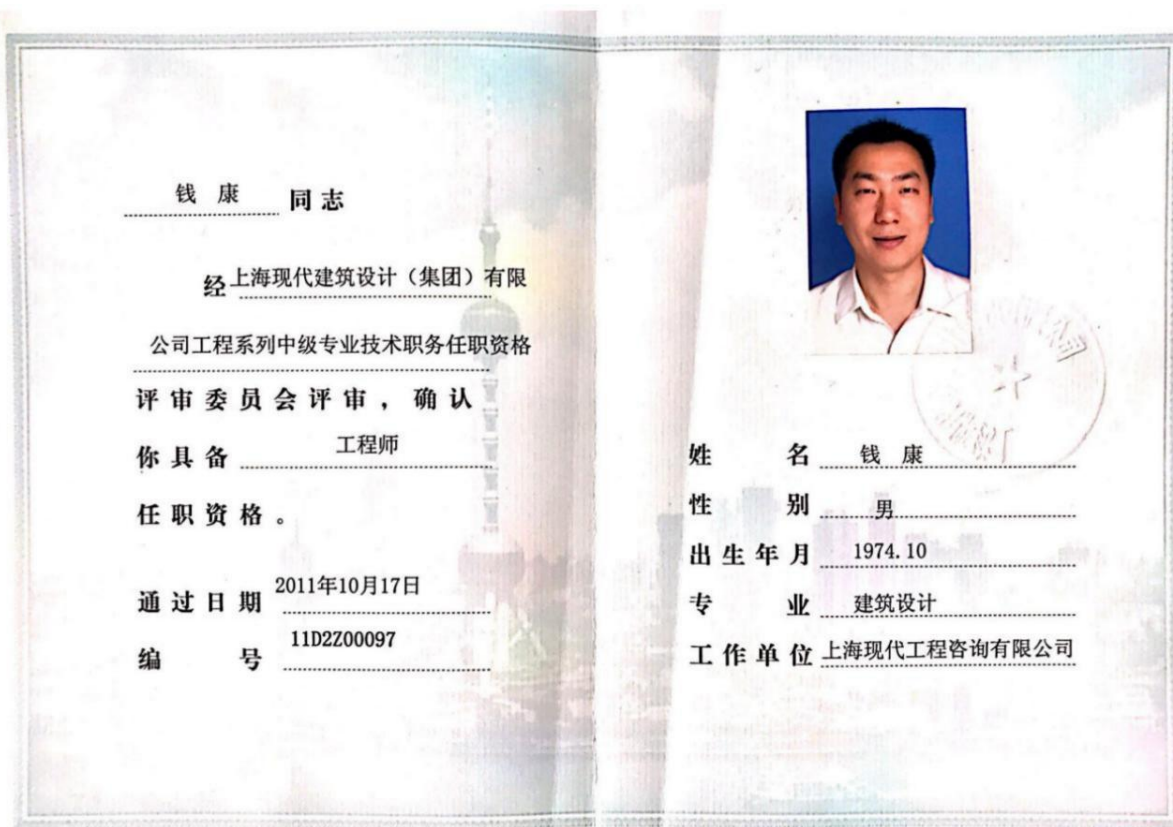 钱 康 同志
经上海现代建筑设计（集团）有限
公司工程系列中级专业技术职务任职资格
评审委员会评审，确认
你具备 工程师
任职资格。
通过日期 2011年10月17日
编 号 11D2Z00097
姓 名 钱 康
性 别 男
出生年月 1974.10
专 业 建筑设计
工作单位 上海现代工程咨询有限公司